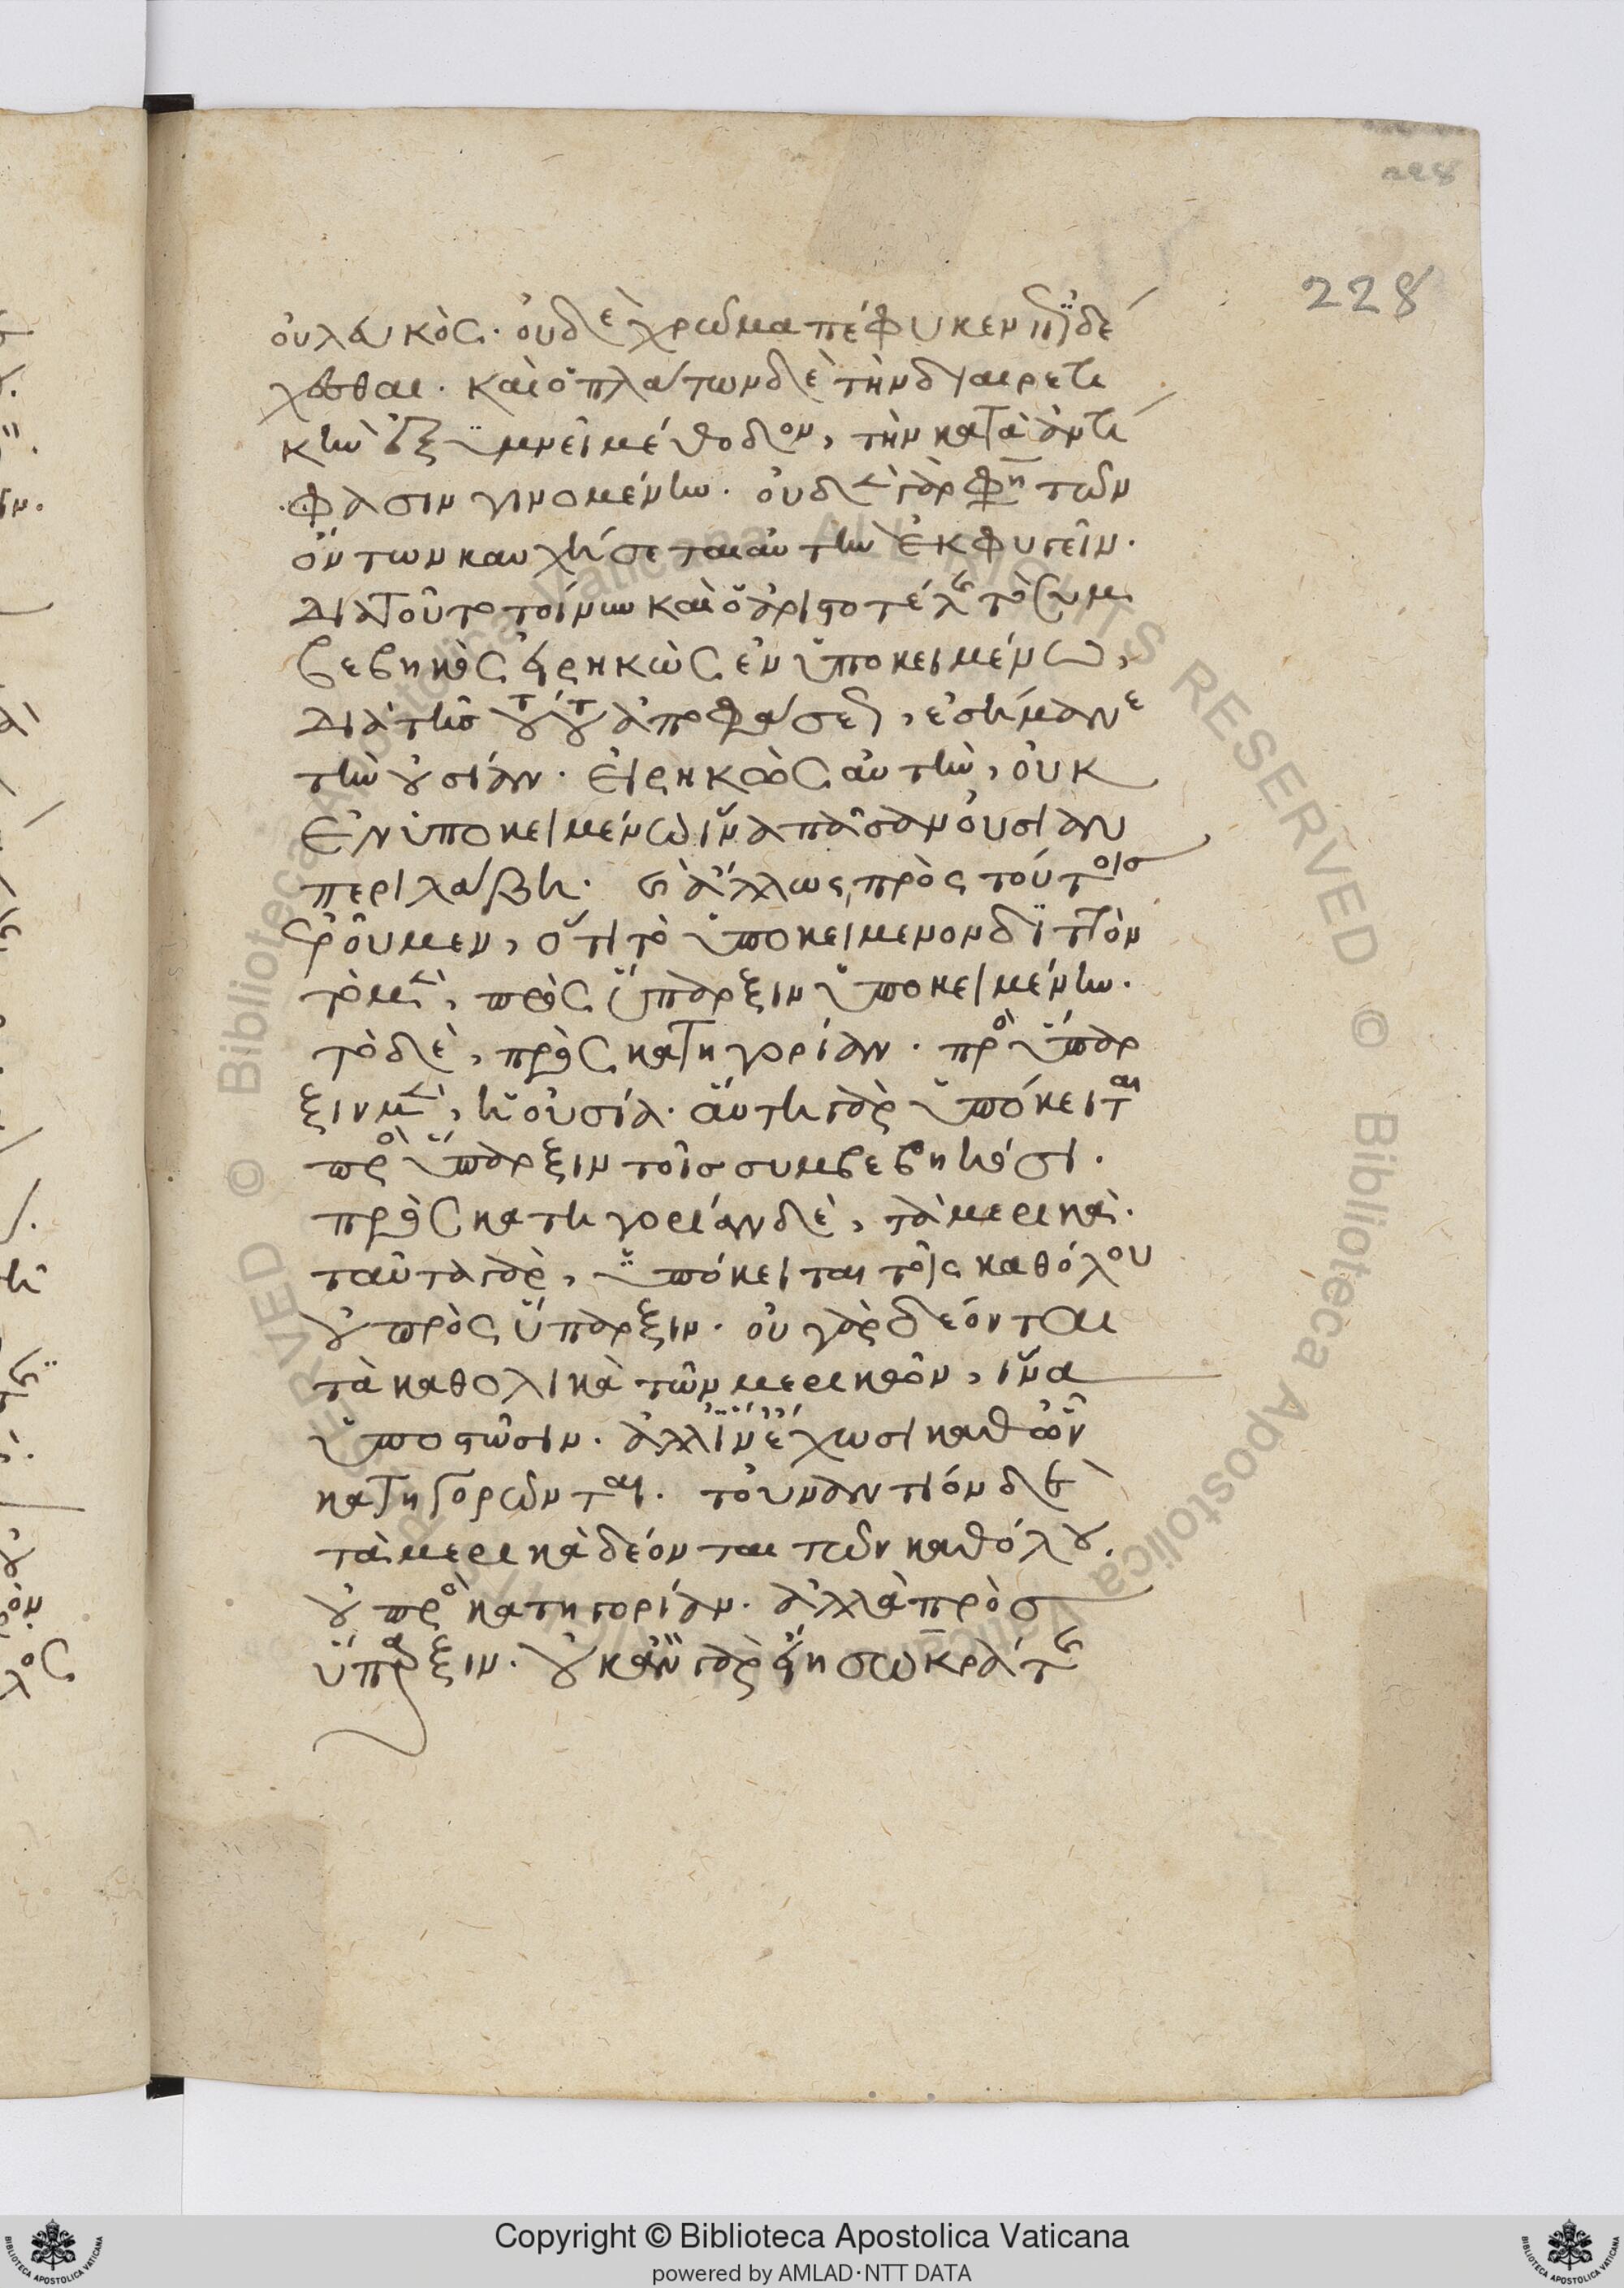 228
228
οὐ λευκός. οὐδὲ χρῶμα πέφυκεν ἤδη δέ
χεσθαι. καὶ ὁ πλάτων δὲ τὴν διαιρετι
κὴν ἐξυμνεῖ μέθοδον, τὴν κατὰ ἀντί
φασιν γινομένην. οὐδὲν γὰρ φη τῶν
ὄντων καυχήσεται αὐτὴν ἐκφυγεῖν.
διὰ τοῦτο τοίνυν καὶ ὁ ἀριστοτέλης τὸ συμ
βεβηκὸς εἰρηκὼς ἐν ὑποκειμένω,
διὰ τῆς τούτου ἀποφάσεως, ἐσήμανε
τὴν οὐσίαν. εἰρηκὼς αὐτὴν, οὐκ
ἐν ὑποκειμένω ἵνα πᾶσαν οὐσίαν
περιλάβη. καὶ ἄλλως πρὸς τούτοις
ἐροῦμεν, ὅτι τὸ ὑποκείμενον διττὸν
τὸ μὲν, πρὸς ὕπαρξιν ὑποκειμένην.
τὸ δὲ, πρὸς κατηγορίαν. πρὸς ὕπαρ
ξιν μὲν, ἡ οὐσία. αὕτη γὰρ ὑπόκειται
πρὸς ὕπαρξιν τοῖς συμβεβηκόσι.
πρὸς κατηγορίαν δὲ, τὰ μερικά.
ταῦτα γὰρ, ὑπόκειται τοῖς καθόλου
οὐ πρὸς ὕπαρξιν. οὐ γὰρ δέονται
τὰ καθολικὰ τῶν μερικῶν, ἵνα
ὑποστῶσιν. ἀλλ' ἵν' ἔχωσι καθ' ὧν
κατηγορῶνται. τοὐναντίον δὲ
τὰ μερικὰ δέονται τῶν καθόλου.
οὐ πρὸς κατηγορίαν. ἀλλὰ πρὸς
ὕπαρξιν. οὐκ ἂν γὰρ εἴη σωκράτης
Copyright © Biblioteca Apostolica Vaticana
powered by AMLAD·NTT DATA